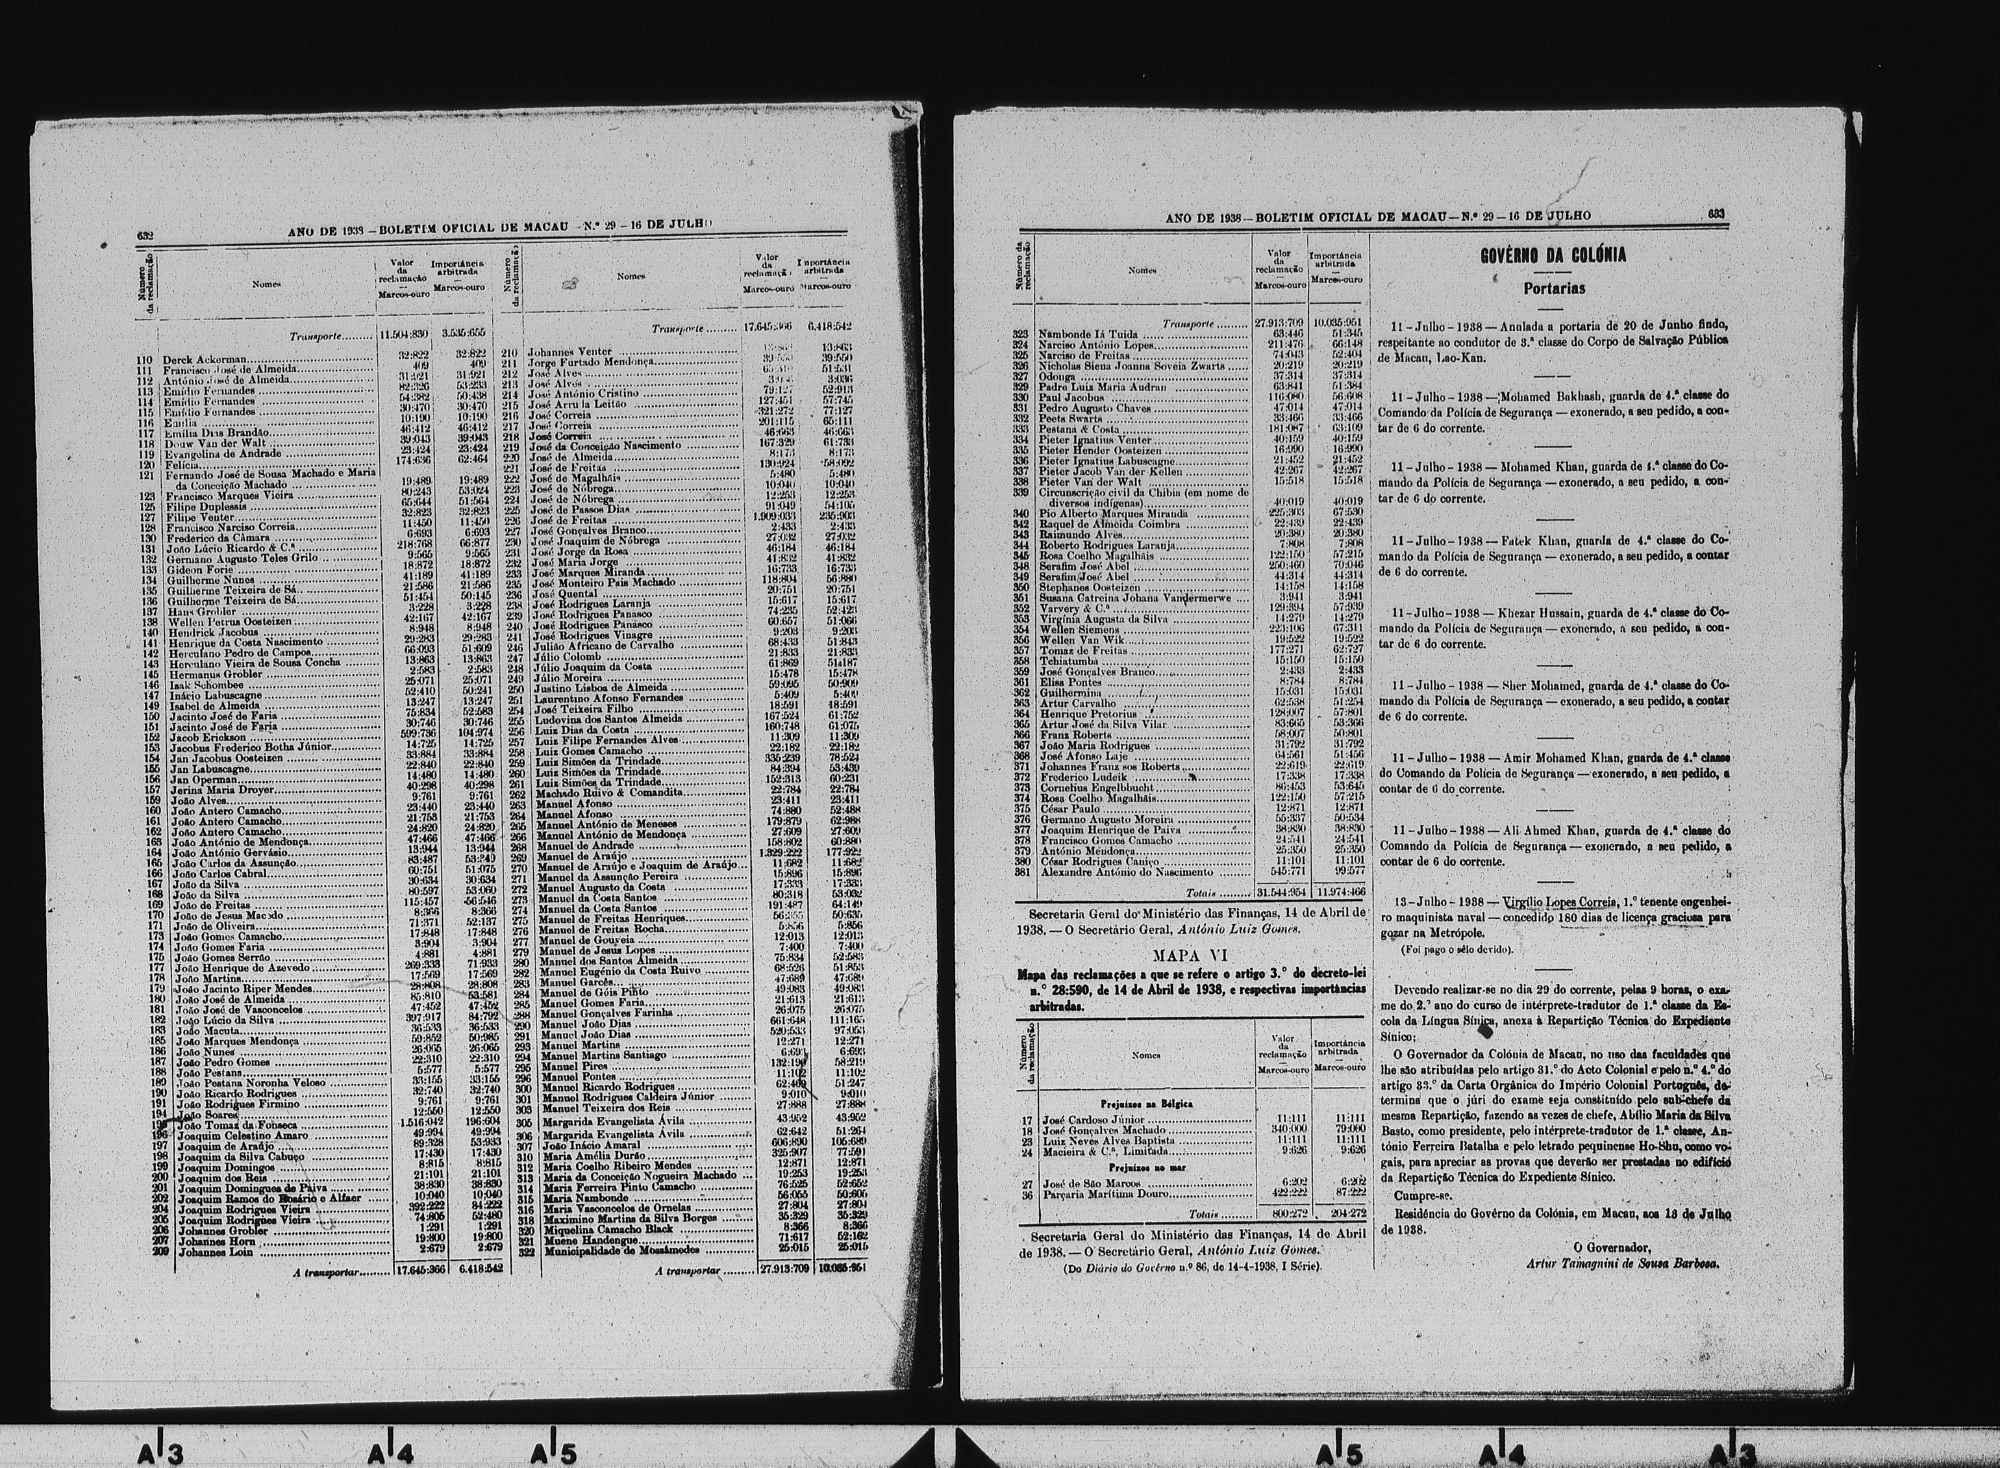 632
ANO DE 1938 — BOLETIM OFICIAL DE MACAU — N.º 29 — 16 DE JULHO
Número da reclamação Nomes Valor da reclamação — Marcos-ouro Importância arbitrada — Marcos-ouro
Transporte 11.504:830 3.535:655
110 Derck Ackerman 32:822 32:822
111 Francisco José de Almeida 409 409
112 António José de Almeida 31:921 31:921
113 Emídio Fernandes 82:326 53:233
114 Emídio Fernandes 54:382 50:438
115 Emídio Fernandes 30:470 30:470
116 Emília 10:190 10:190
117 Emília Dias Brandão 46:412 46:412
118 Douw Van der Walt 39:043 39:043
119 Evangelina de Andrade 23:424 23:424
120 Felícia 174:636 62:464
121 Fernando José de Sousa Machado e Maria
da Conceição Machado 19:489 19:489
123 Francisco Marques Vieira 80:243 53:024
125 Filipe Duplessis 65:644 51:564
127 Filipe Venter 32:823 32:823
128 Francisco Narciso Correia 11:450 11:450
130 Frederico da Câmara 6:693 6:693
131 João Lúcio Ricardo & C.ª 218:768 66:877
132 Germano Augusto Teles Grilo 9:565 9:565
133 Gideon Forie 18:872 18:872
134 Guilherme Nunes 41:189 41:189
135 Guilherme Teixeira de Sá 21:586 21:586
136 Guilherme Teixeira de Sá 51:454 50:145
137 Hans Grobler 3:228 3:228
138 Wellen Petrus Oosteizen 42:167 42:167
140 Hendrick Jacobus 8:948 8:948
141 Henrique da Costa Nascimento 29:283 29:283
142 Herculano Pedro de Campos 66:093 51:609
143 Herculano Vieira de Sousa Concha 13:863 13:863
145 Hermanus Grobler 2:583 2:583
146 Isak Schombee 25:071 25:071
147 Inácio Labuscagne 52:410 50:241
149 Isabel de Almeida 13:247 13:247
150 Jacinto José de Faria 75:834 52:583
151 Jacinto José de Faria 30:746 30:746
152 Jacob Erickson 599:736 104:974
153 Jacobus Frederico Botha Júnior 14:725 14:725
154 Jan Jacobus Oosteizen 33:884 33:884
155 Jan Labuscagne 22:840 22:840
156 Jan Operman 14:480 14:480
157 Jerina Maria Droyer 40:298 40:298
159 João Alves 9:761 9:761
160 João Antero Camacho 23:440 23:440
161 João Antero Camacho 21:753 21:753
162 João Antero Camacho 24:820 24:820
163 João António de Mendonça 47:466 47:466
164 João António Gervásio 13:944 13:944
165 João Carlos da Assunção 83:487 53:349
166 João Carlos Cabral 60:751 51:075
167 João da Silva 30:634 30:634
168 João da Silva 80:597 53:060
169 João de Freitas 115:457 56:546
170 João de Jesus Macedo 8:366 8:366
171 João de Oliveira 71:371 52:137
173 João Gomes Camacho 17:848 17:848
174 João Gomes Faria 3:904 3:904
175 João Gomes Serrão 4:881 4:881
177 João Henrique de Azevedo 269:333 71:933
178 João Martins 17:569 17:569
179 João Jacinto Riper Mendes 28:808 28:808
180 João José de Almeida 85:810 53:581
181 João José de Vasconcelos 47:452 47:452
182 João Lúcio da Silva 397:917 84:792
183 João Macuta 36:533 36:533
185 João Marques Mendonça 50:852 50:985
186 João Nunes 26:065 26:065
187 João Pedro Gomes 22:310 22:310
188 João Pestana 5:577 5:577
189 João Pestana Noronha Veloso 33:155 33:155
190 João Ricardo Rodrigues 32:740 32:740
191 João Rodrigues Firmino 9:761 9:761
194 João Soares 12:550 12:550
195 João Tomaz da Fonseca 1.516:042 196:604
196 Joaquim Celestino Amaro 49:994 49:994
197 Joaquim de Araújo 89:328 53:933
198 Joaquim da Silva Cabuço 17:430 17:430
199 Joaquim Domingos 8:815 8:815
200 Joaquim dos Reis 21:101 21:101
201 Joaquim Domingues de Paiva 38:830 38:830
202 Joaquim Ramos do Rosário e Alfaer 10:040 10:040
204 Joaquim Rodrigues Vieira 392:222 84:222
205 Joaquim Rodrigues Vieira 74:805 52:480
206 Johannes Grobler 1:291 1:291
207 Johannes Horn 19:800 19:800
209 Johannes Loin 2:679 2:679
A transportar 17.645:366 6.418:542
Número da reclamação Nomes Valor da reclamação — Marcos-ouro Importância arbitrada — Marcos-ouro
Transporte 17.645:366 6.418:542
210 Johannes Venter 13:863
211 Jorge Furtado Mendonça 39:550 39:550
212 José Alves 51:531
213 José Alves 3:036 3:036
214 José António Cristino 79:127 52:913
215 José Arruda Leitão 127:451 57:745
216 José Correia 321:272 77:127
217 José Correia 201:115 65:111
218 José Correia 46:663 46:663
219 José da Conceição Nascimento 167:329 61:733
220 José de Almeida 8:173 8:173
221 José de Freitas 130:924 58:092
222 José de Magalhãis 5:480 5:480
223 José de Nóbrega 10:040 10:040
224 José de Nóbrega 12:253 12:253
225 José de Passos Dias 91:049 54:105
226 José de Freitas 1.909:033 235:903
227 José Gonçalves Branco 2:433 2:433
230 José Joaquim de Nóbrega 27:032 27:032
231 José Jorge da Rosa 46:184 46:184
232 José Maria Jorge 41:832 41:832
233 José Marques Miranda 16:733 16:733
235 José Monteiro Pais Machado 118:804 56:880
236 José Quental 20:751 20:751
238 José Rodrigues Laranja 15:617 15:617
239 José Rodrigues Panasco 74:235 52:423
240 José Rodrigues Panasco 60:657 51:066
241 José Rodrigues Vinagre 9:203 9:203
246 Julião Africano de Carvalho 68:433 51:843
247 Júlio Colomb 21:833 21:833
248 Júlio Joaquim da Costa 61:869 51:187
249 Júlio Moreira 15:478 15:478
250 Justino Lisboa de Almeida 59:095 50:909
251 Laurentino Afonso Fernandes 5:409 5:409
254 José Teixeira Filho 18:591 18:591
255 Ludovina dos Santos Almeida 167:524 61:752
256 Luiz Dias da Costa 160:748 61:075
257 Luiz Filipe Fernandes Alves 11:309 11:309
258 Luiz Gomes Camacho 22:182 22:182
259 Luiz Simões da Trindade 335:239 78:524
260 Luiz Simões da Trindade 84:394 53:439
261 Luiz Simões da Trindade 152:313 60:231
262 Machado Ruivo & Comandita 22:784 22:784
263 Manuel Afonso 23:411 23:411
264 Manuel Afonso 74:880 52:488
265 Manuel António de Meneses 179:879 62:988
266 Manuel António de Mendonça 27:609 27:609
268 Manuel de Andrade 158:802 60:880
269 Manuel de Araújo 1.329:222 177:922
270 Manuel de Araújo e Joaquim de Araújo 11:682 11:682
271 Manuel da Assunção Pereira 15:896 15:896
272 Manuel Augusto da Costa 17:333 17:333
273 Manuel da Costa Santos 80:318 53:032
274 Manuel da Costa Santos 191:487 64:149
275 Manuel de Freitas Henriques 56:355 50:635
276 Manuel de Freitas Rocha 5:856 5:856
277 Manuel de Gouveia 12:013 12:013
279 Manuel de Jesus Lopes 7:400 7:400
280 Manuel dos Santos Almeida 75:834 52:583
282 Manuel Eugénio da Costa Ruivo 68:526 51:853
283 Manuel Garcês 47:689 47:689
284 Manuel de Góis Pinto 49:083 49:083
285 Manuel Gomes Faria 21:613 21:613
288 Manuel Gonçalves Farinha 26:075 26:075
290 Manuel João Dias 661:648 111:165
291 Manuel João Dias 520:533 97:053
293 Manuel Martins 12:271 12:271
294 Manuel Martins Santiago 6:693 6:693
295 Manuel Pires 132:190 58:219
296 Manuel Pontes 11:102 11:102
300 Manuel Ricardo Rodrigues 62:469 51:247
301 Manuel Rodrigues Caldeira Júnior 9:010 9:010
303 Manuel Teixeira dos Reis 27:888 27:888
305 Margarida Evangelista Ávila 43:952 43:952
306 Margarida Evangelista Ávila 62:642 51:264
307 João Inácio Amaral 606:890 105:689
310 Maria Amélia Durão 325:907 77:591
312 Maria Coelho Ribeiro Mendes 12:871 12:871
313 Maria da Conceição Nogueira Machado 19:253 19:253
314 Maria Ferreira Pinto Camacho 76:525 52:652
315 Maria Nambonde 56:055 50:605
316 Maria Vasconcelos de Ornelas 27:804 27:804
318 Maximino Martins da Silva Borges 35:329 35:329
320 Miquelina Camacho Black 8:366 8:366
321 Muene Handengue 71:617 52:162
322 Municipalidade de Mossâmedes 25:015 25:015
A transportar 27.913:709 10.035:951
ANO DE 1938 — BOLETIM OFICIAL DE MACAU — N.º 29 — 16 DE JULHO
633
Número da reclamação Nomes Valor da reclamação — Marcos-ouro Importância arbitrada — Marcos-ouro
Transporte 27.913:709 10.035:951
323 Nambonde Iá Tuida 63:446 51:345
324 Narciso António Lopes 211:476 66:148
325 Narciso de Freitas 74:043 52:404
326 Nicholas Siena Joanna Soveia Zwarts 20:219 20:219
327 Odonga 37:314 37:314
329 Padre Luiz Maria Audran 63:841 51:384
330 Paul Jacobus 116:080 56:608
331 Pedro Augusto Chaves 47:014 47:014
332 Peets Swarts 33:466 33:466
333 Pestana & Costa 181:087 63:109
334 Pieter Ignatius Venter 40:159 40:159
335 Pieter Hender Oosteizen 16:990 16:990
336 Pieter Ignatius Labuscagne 21:452 21:452
337 Pieter Jacob Van der Kellen 42:267 42:267
338 Pieter Van der Walt 15:518 15:518
339 Circunscrição civil da Chibia (em nome de
diversos indígenas) 40:019 40:019
340 Pio Alberto Marques Miranda 225:303 67:530
342 Raquel de Almeida Coimbra 22:439 22:439
343 Raimundo Alves 20:380 20:380
344 Roberto Rodrigues Laranja 7:808 7:808
345 Rosa Coelho Magalhãis 122:150 57:215
348 Serafim José Abel 250:460 70:046
349 Serafim José Abel 44:314 44:314
350 Stephanes Oosteizen 14:158 14:158
351 Susana Catreina Johana Vandermerwe 3:941 3:941
352 Varvery & C.ª 129:394 57:939
353 Virgínia Augusta da Silva 14:279 14:279
354 Wellen Siemens 223:106 67:311
356 Wellen Van Wik 19:522 19:522
357 Tomaz de Freitas 177:271 62:727
358 Tchiatumba 15:150 15:150
359 José Gonçalves Branco 2:433 2:433
361 Elisa Pontes 8:784 8:784
362 Guilhermina 15:031 15:031
363 Artur Carvalho 62:538 51:254
364 Henrique Pretorius 128:007 57:801
365 Artur José da Silva Vilar 83:665 53:366
366 Franz Roberts 58:007 50:801
367 João Maria Rodrigues 31:792 31:792
368 José Afonso Laje 64:561 51:456
371 Johannes Franz sos Roberts 22:619 22:619
372 Frederico Ludeik 17:338 17:338
373 Cornelius Engelbbucht 86:453 53:645
374 Rosa Coelho Magalhãis 122:150 57:215
375 César Paulo 12:871 12:871
376 Germano Augusto Moreira 55:337 50:534
377 Joaquim Henrique de Paiva 38:830 38:830
378 Francisco Gomes Camacho 24:541 24:541
379 António Mendonça 25:350 25:350
380 César Rodrigues Caniço 11:101 11:101
381 Alexandre António do Nascimento 545:771 99:577
Totais 31.544:954 11.974:466
Secretaria Geral do Ministério das Finanças, 14 de Abril de
1938. — O Secretário Geral, António Luiz Gomes.
MAPA VI
Mapa das reclamações a que se refere o artigo 3.º do decreto-lei
n.º 28:590, de 14 de Abril de 1938, e respectivas importâncias
arbitradas.
Número da reclamação Nomes Valor da reclamação — Marcos-ouro Importância arbitrada — Marcos-ouro
Prejuízos na Bélgica
17 José Cardoso Júnior 11:111 11:111
18 José Gonçalves Machado 340:000 79:000
23 Luiz Neves Alves Baptista 11:111 11:111
24 Macieira & C.ª, Limitada 9:626 9:626
Prejuízos no mar
27 José de São Marcos 6:202 6:202
36 Parçaria Marítima Douro 422:222 87:222
Totais 800:272 204:272
Secretaria Geral do Ministério das Finanças, 14 de Abril
de 1938. — O Secretário Geral, António Luiz Gomes.
(Do Diário do Govêrno n.º 86, de 14-4-1938, I Série).
GOVÊRNO DA COLÓNIA
Portarias
11 - Julho - 1938 — Anulada a portaria de 20 de Junho findo,
respeitante ao condutor de 3.ª classe do Corpo de Salvação Pública
de Macau, Lao-Kan.
11 - Julho - 1938 — Mohamed Bakhash, guarda de 4.ª classe do
Comando da Polícia de Segurança — exonerado, a seu pedido, a con-
tar de 6 do corrente.
11 - Julho - 1938 — Mohamed Khan, guarda de 4.ª classe do Co-
mando da Polícia de Segurança — exonerado, a seu pedido, a con-
tar de 6 do corrente.
11 - Julho - 1938 — Fatek Khan, guarda de 4.ª classe do Co-
mando da Polícia de Segurança — exonerado, a seu pedido, a contar
de 6 do corrente.
11 - Julho - 1938 — Khezar Hussain, guarda de 4.ª classe do Co-
mando da Polícia de Segurança — exonerado, a seu pedido, a con-
tar de 6 do corrente.
11 - Julho - 1938 — Sher Mohamed, guarda de 4.ª classe do Co-
mando da Polícia de Segurança — exonerado, a seu pedido, a contar
de 6 do corrente.
11 - Julho - 1938 — Amir Mohamed Khan, guarda de 4.ª classe
do Comando da Polícia de Segurança — exonerado, a seu pedido, a
contar de 6 do corrente.
11 - Julho - 1938 — Ali Ahmed Khan, guarda de 4.ª classe do
Comando da Polícia de Segurança — exonerado, a seu pedido, a
contar de 6 do corrente.
13 - Julho - 1938 — Virgílio Lopes Correia, 1.º tenente engenhei-
ro maquinista naval — concedido 180 dias de licença graciosa para
gozar na Metrópole.
(Foi pago o sêlo devido).
Devendo realizar-se no dia 29 do corrente, pelas 9 horas, o exa-
me do 2.º ano do curso de intérprete-tradutor de 1.ª classe da Es-
cola da Língua Sínica, anexa à Repartição Técnica do Expediente
Sínico;
O Governador da Colónia de Macau, no uso das faculdades que
lhe são atribuídas pelo artigo 31.º do Acto Colonial e pelo n.º 4.º do
artigo 33.º da Carta Orgânica do Império Colonial Português, de-
termina que o júri do exame seja constituído pelo sub-chefe da
mesma Repartição, fazendo as vezes de chefe, Abílio Maria da Silva
Basto, como presidente, pelo intérprete-tradutor de 1.ª classe, An-
tónio Ferreira Batalha e pelo letrado pequinense Ho-Shu, como vo-
gais, para apreciar as provas que deverão ser prestadas no edifício
da Repartição Técnica do Expediente Sínico.
Cumpre-se.
Residência do Govêrno da Colónia, em Macau, aos 13 de Julho
de 1938.
O Governador,
Artur Tamagnini de Sousa Barbosa.
A 3
A 4
A 5
A 5
A 4
A 3